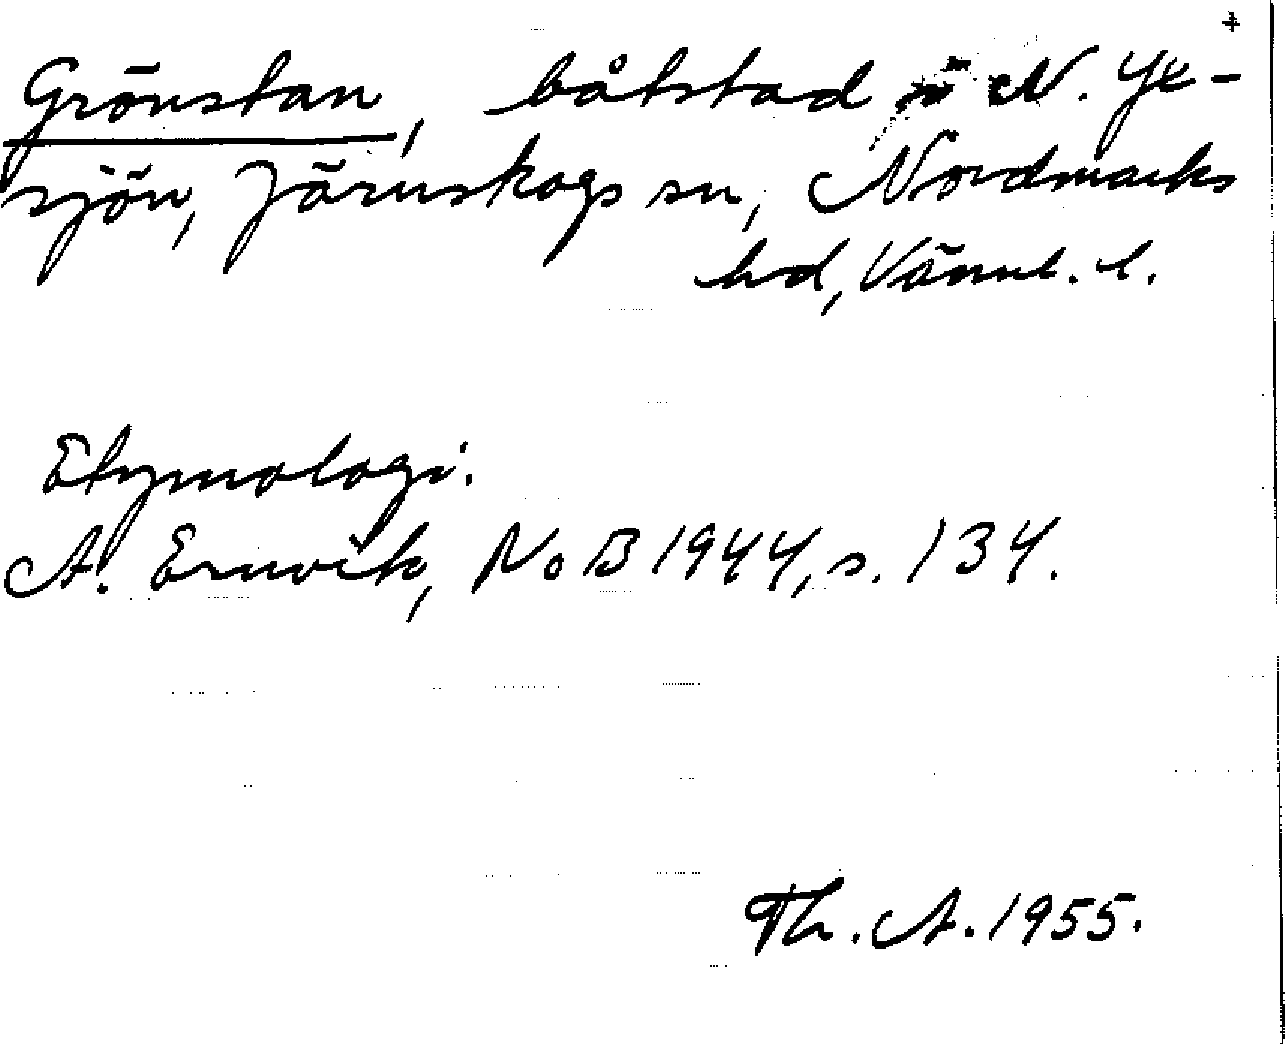 Grönstan, båtstad i N. Ye-
sjön, Järnskogs sn, Nordmarks
hd, Värml. l.
Etymologi:
A. Ernvik, NoB 1944, s. 134.
Th. A. 1955.